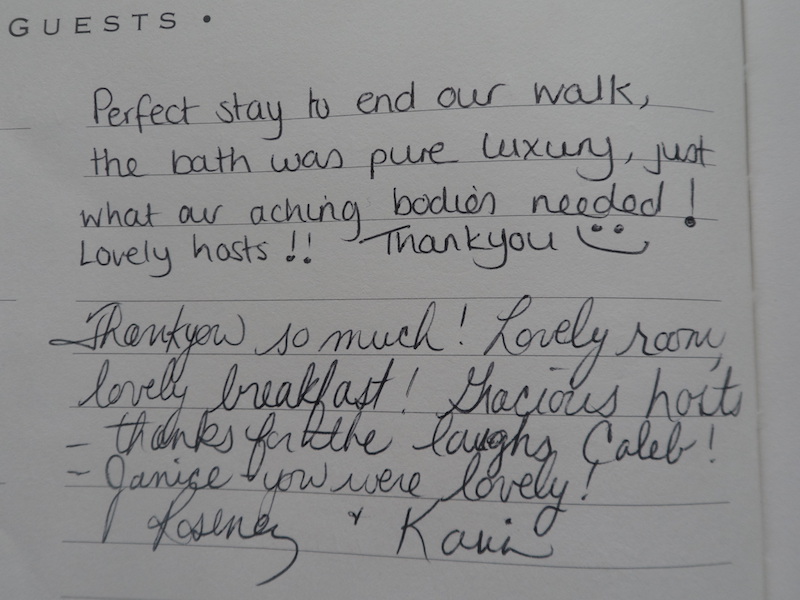 GUESTS •
Perfect stay to end our walk,
the bath was pure luxury, just
what our aching bodies needed!
Lovely hosts!! Thankyou
Thankyou so much! Lovely room,
lovely breakfast! Gracious hosts
- thanks for the laughs, Caleb!
- Janice you were lovely!
&